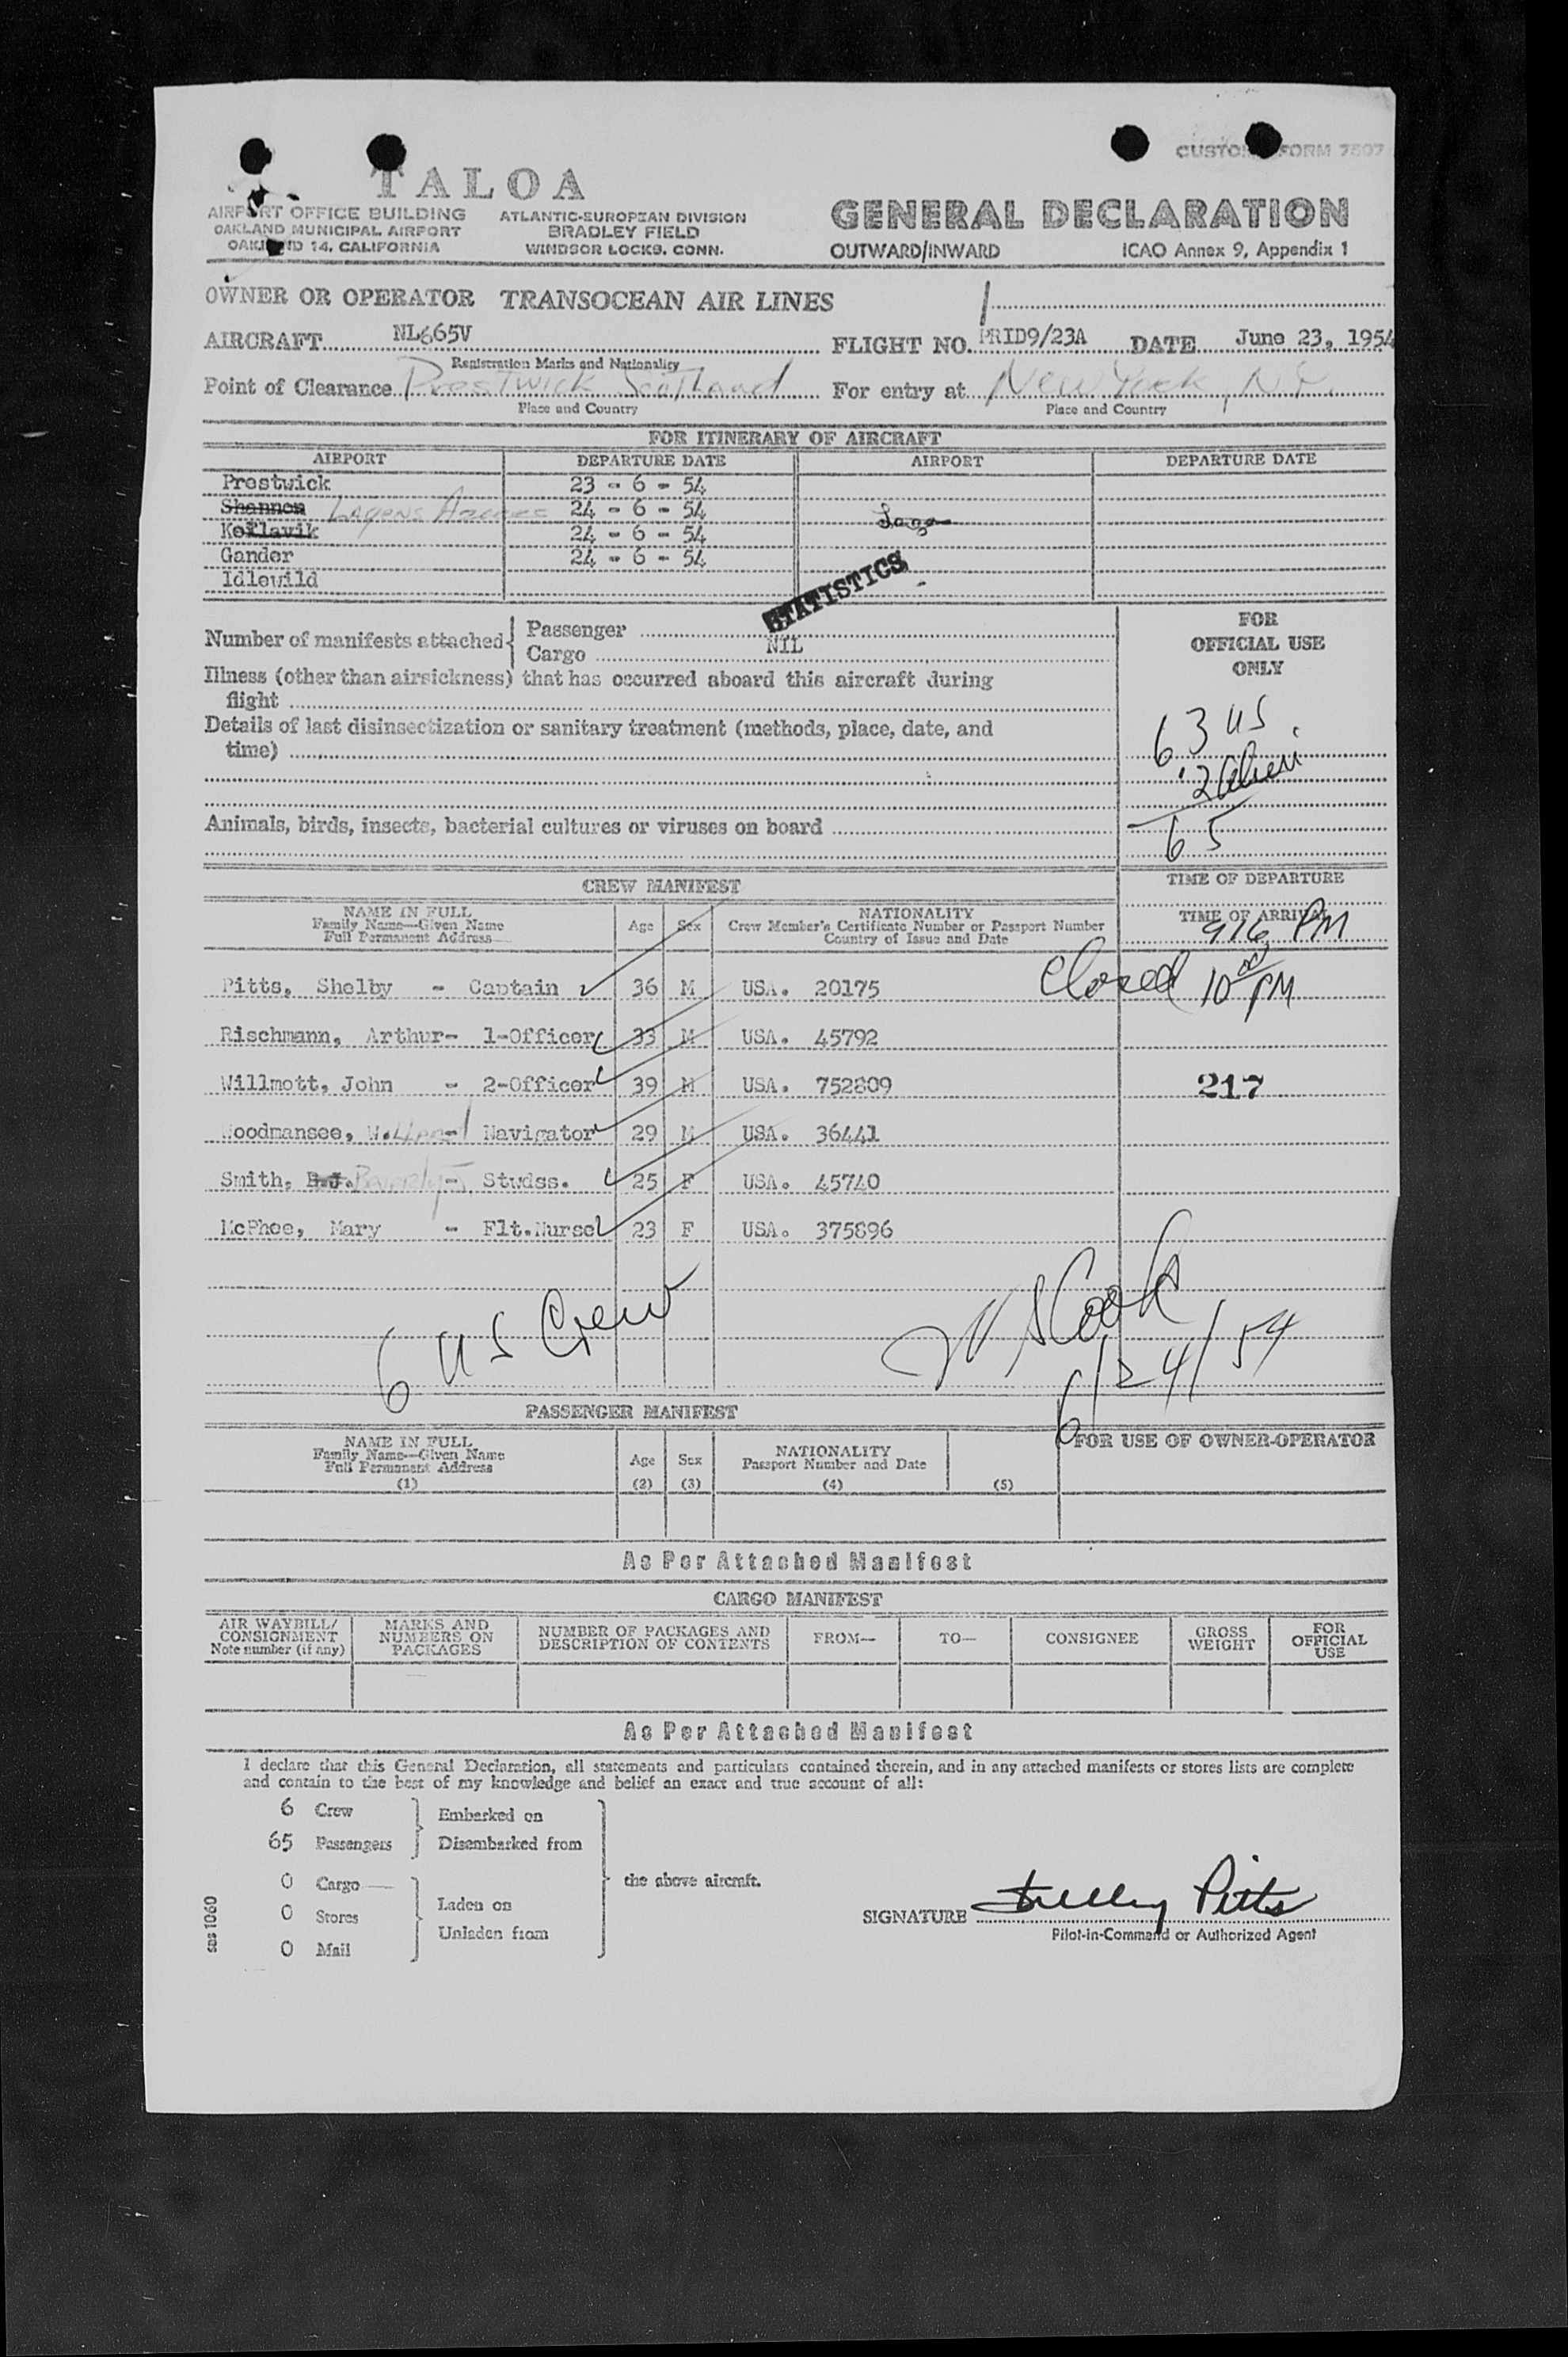 CUSTOMS FORM 7507
TALOA
AIRPORT OFFICE BUILDING
OAKLAND MUNICIPAL AIRPORT
OAKLAND 14, CALIFORNIA
ATLANTIC-EUROPEAN DIVISION
BRADLEY FIELD
WINDSOR LOCKS, CONN.
GENERAL DECLARATION
OUTWARD/INWARD ICAO Annex 9, Appendix 1
OWNER OR OPERATOR TRANSOCEAN AIR LINES
AIRCRAFT NL665V FLIGHT NO. PRID9/23A DATE June 23, 1954
Registration Marks and Nationality
Point of Clearance Prestwick Scotland For entry at New York, N.Y.
Place and Country Place and Country
FOR ITINERARY OF AIRCRAFT
AIRPORT DEPARTURE DATE AIRPORT DEPARTURE DATE
Prestwick 23 - 6 - 54
Shannon Lagens Azores 24 - 6 - 54
Keflavik 24 - 6 - 54
Gander 24 - 6 - 54
Idlewild
STATISTICS
Number of manifests attached { Passenger
Cargo NIL
Illness (other than airsickness) that has occurred aboard this aircraft during
flight
Details of last disinsectization or sanitary treatment (methods, place, date, and
time)
Animals, birds, insects, bacterial cultures or viruses on board
FOR
OFFICIAL USE
ONLY
63 US.
2 Alien
65
TIME OF DEPARTURE
TIME OF ARRIVAL
916 PM
Closed 10 00 PM
217
CREW MANIFEST
NAME IN FULL
Family Name—Given Name
Full Permanent Address
Age Sex
NATIONALITY
Crew Member's Certificate Number or Passport Number
Country of Issue and Date
Pitts, Shelby - Captain 36 M USA. 20175
Rischmann, Arthur- 1-Officer 33 M USA. 45792
Willmott, John - 2-Officer 39 M USA. 752809
Woodmansee, Willard - Navigator 29 M USA. 36441
Smith, B.J. Beverly J - Stwdss. 25 F USA. 45740
McPhee, Mary - Flt.Nurse 23 F USA. 375896
6 US Crew
Cook
6/24/54
PASSENGER MANIFEST
NAME IN FULL
Family Name—Given Name
Full Permanent Address
(1)
Age
(2)
Sex
(3)
NATIONALITY
Passport Number and Date
(4)
(5)
FOR USE OF OWNER-OPERATOR
As Per Attached Manifest
CARGO MANIFEST
AIR WAYBILL/
CONSIGNMENT
Note number (if any)
MARKS AND
NUMBERS ON
PACKAGES
NUMBER OF PACKAGES AND
DESCRIPTION OF CONTENTS
FROM—
TO—
CONSIGNEE
GROSS
WEIGHT
FOR
OFFICIAL
USE
As Per Attached Manifest
I declare that this General Declaration, all statements and particulars contained therein, and in any attached manifests or stores lists are complete
and contain to the best of my knowledge and belief an exact and true account of all:
6 Crew
65 Passengers
0 Cargo
0 Stores
0 Mail
Embarked on
Disembarked from
Laden on
Unladen from
the above aircraft.
SIGNATURE Shelby Pitts
Pilot-in-Command or Authorized Agent
sas 1060